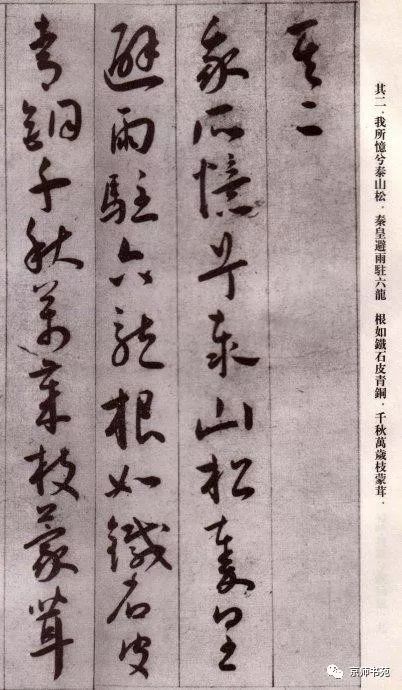 其二
我所憶兮泰山松秦皇
避雨駐六龍根如鐵石皮
青銅千秋萬歲枝蒙茸
其二．我所憶兮泰山松．秦皇避雨駐六龍　根如鐵石皮青銅．千秋萬歲枝蒙茸．
京师书苑